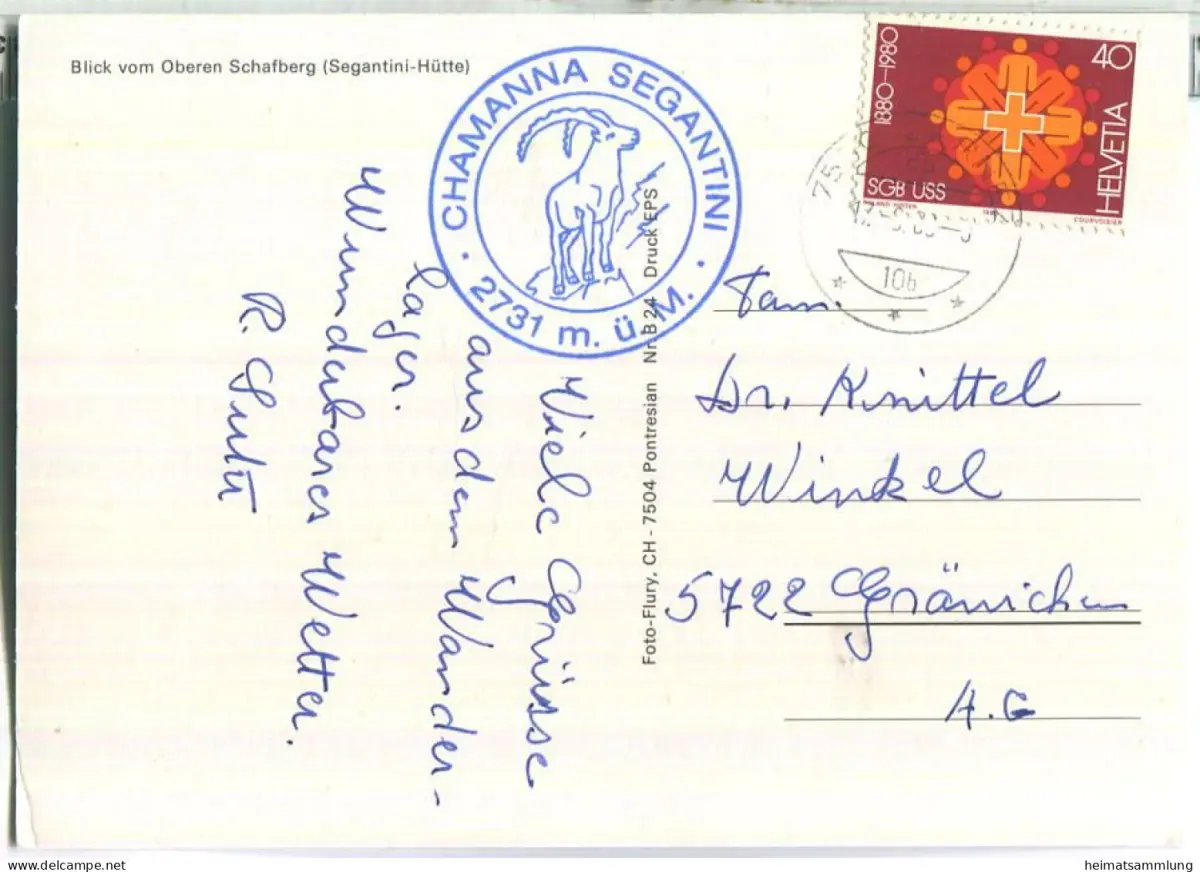 Blick vom Oberen Schafberg (Segantini-Hütte)
CHAMANNA SEGANTINI
2731 m. ü. M.
1880–1980
40
HELVETIA
SGB USS
COURVOISIER
75
10b
Viele Grüsse
aus dem Wander-
lager.
Wunderbares Wetter.
R.
Foto-Flury, CH - 7504 Pontresian Nr. B 24 Druck EPS
Fam.
Dr. Knittel
Winkel
5722 Gränichen
A.G
delcampe.net
heimatsammlung